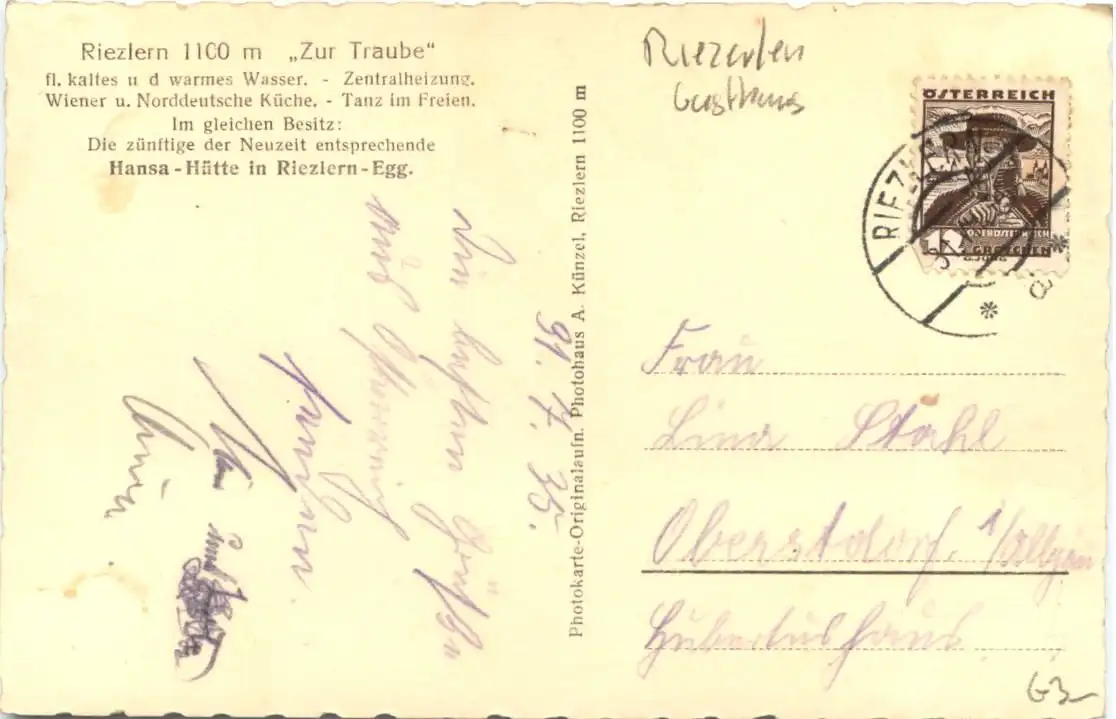 Riezlern 1100 m „Zur Traube“
fl. kaltes u d warmes Wasser. - Zentralheizung.
Wiener u. Norddeutsche Küche. - Tanz im Freien.
Im gleichen Besitz:
Die zünftige der Neuzeit entsprechende
Hansa-Hütte in Riezlern-Egg.
Riezerlen
Gasthaus
ÖSTERREICH
OBERÖSTERREICH
GROSCHEN
RIEZLERN
Photokarte-Originalaufn. Photohaus A. Künzel, Riezlern 1100 m
7. 35.
Die besten Grüße
Frau
Lina Stahl
Oberstdorf. i/Allgäu
Hubertushaus